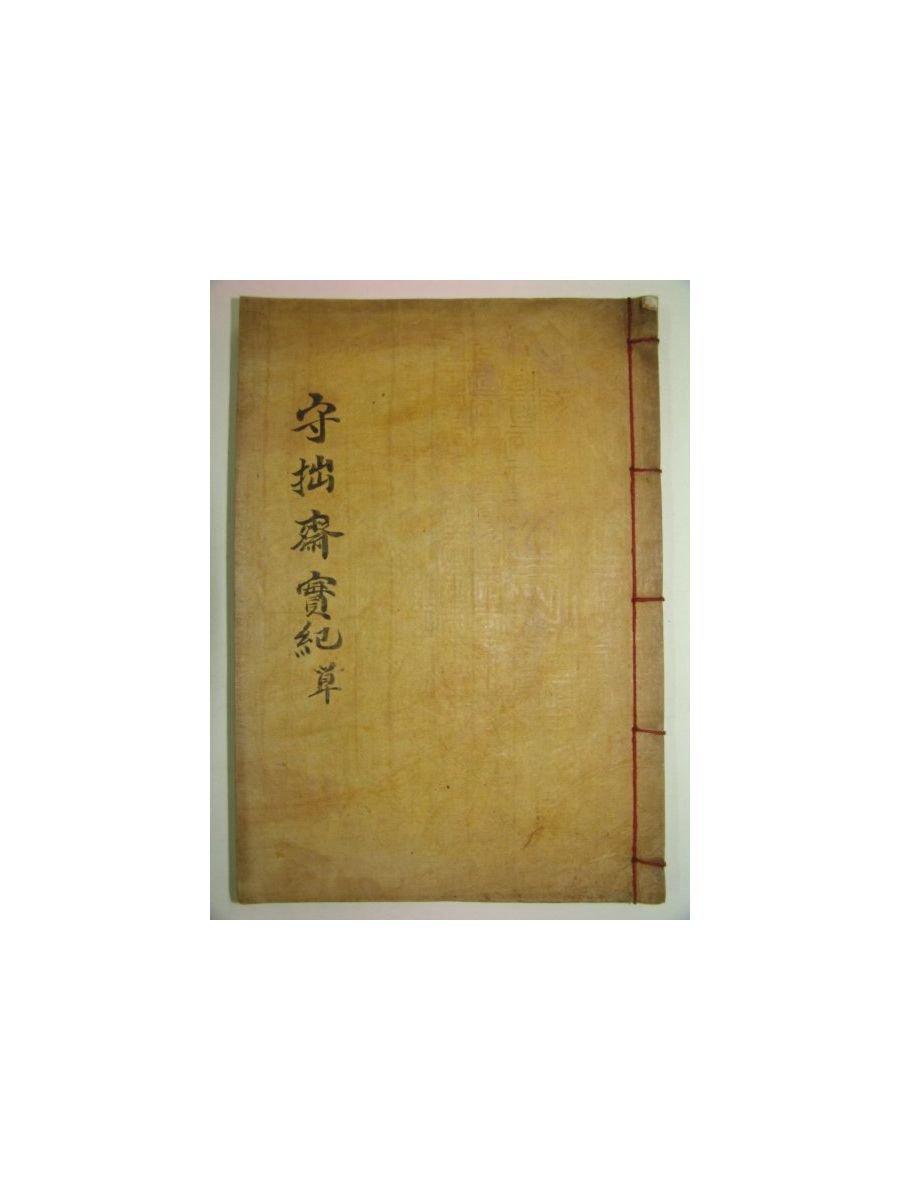 守拙齋實紀 草